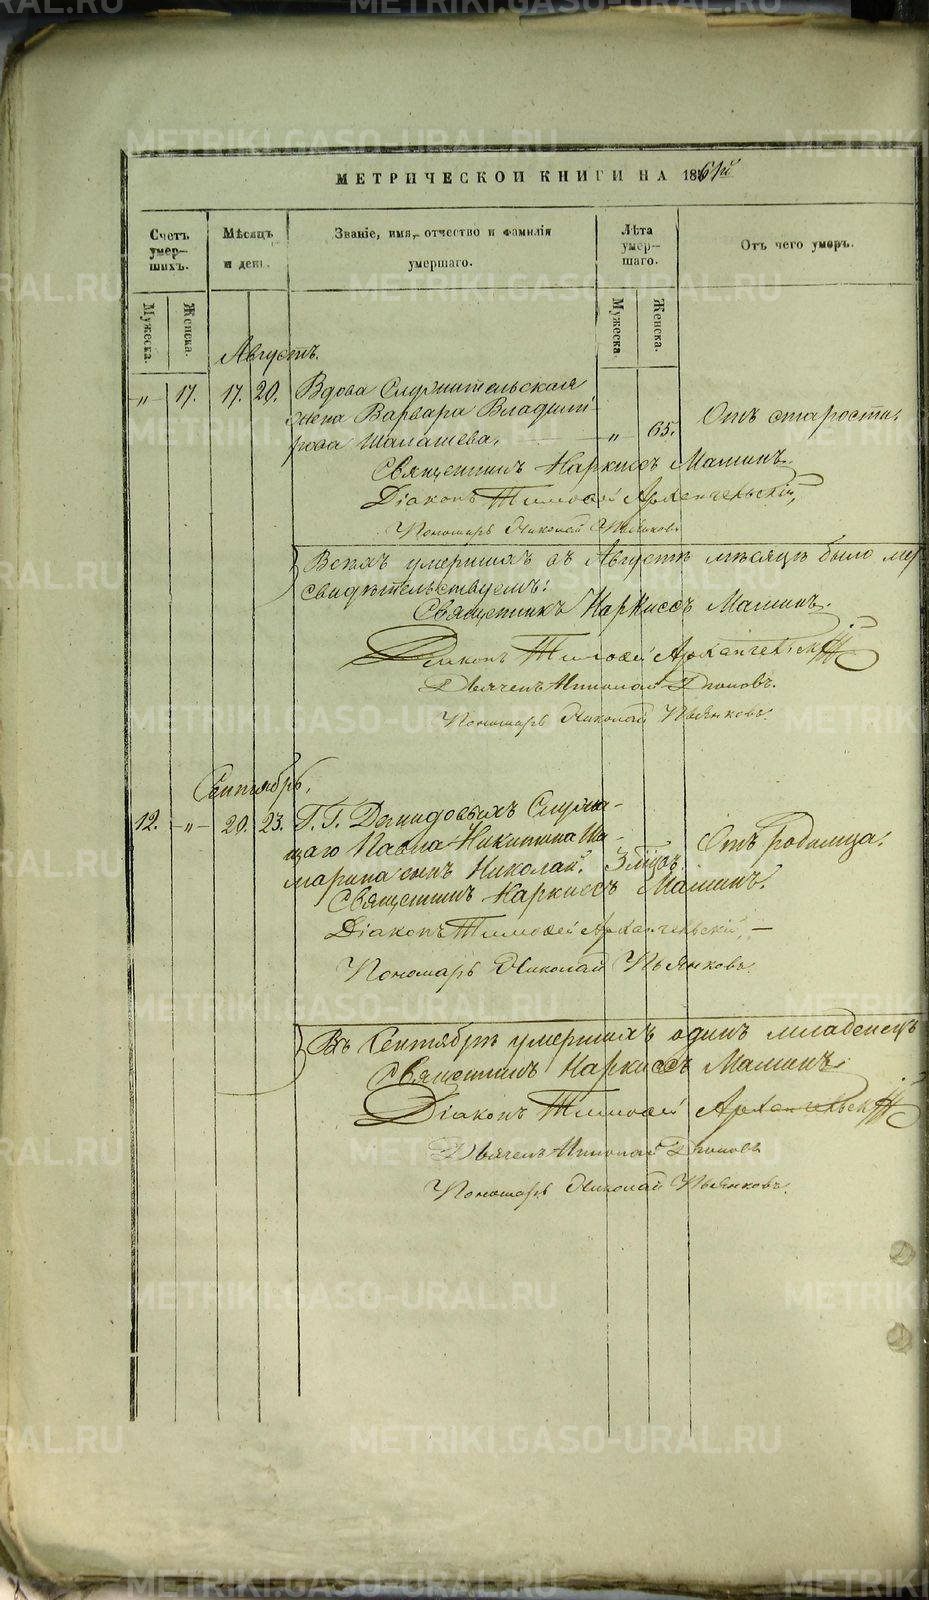 МЕТРИЧЕСКОЙ КНИГИ НА 1861й
Счетъ умершихъ.
Мужеска.
Женска.
Мѣсяцъ и день.
Званіе, имя, отчество и фамилія умершаго.
Лѣта умершаго.
Мужеска.
Женска.
Отъ чего умеръ.
Августъ.
„ 17. 17. 20. Вдова Служительская
жена Варвара Владимі-
рова Шалашева. „ 65. Отъ старости.
Священникъ Наркиссъ Маминъ.
Діаконъ Тимоѳей Архангельскій,
Пономарь Николай
Всѣхъ умершихъ въ Августѣ мѣсяцѣ было
свидѣтельствуемъ:
Священникъ Наркиссъ Маминъ.
Діаконъ Тимоѳей Архангельскій
Дьячекъ Николай Поповъ.
Пономарь Николай Пьянковъ.
Сентябрь.
12. „ 20. 23. Г. Г. Демидовыхъ Служа-
щаго Павла Никитина Ша-
марина сынъ Николай. 3 мѣсъ. Отъ родимца.
Священникъ Наркиссъ Маминъ.
Діаконъ Тимоѳей Архангельскій.
Пономарь Николай Пьянковъ.
Въ Сентябрѣ умершихъ одинъ младенецъ
Священникъ Наркиссъ Маминъ
Діаконъ Тимоѳей Архангельскій
Дьячекъ Николай Поповъ
Пономарь Николай Пьянковъ.
METRIKI.GASO-URAL.RU